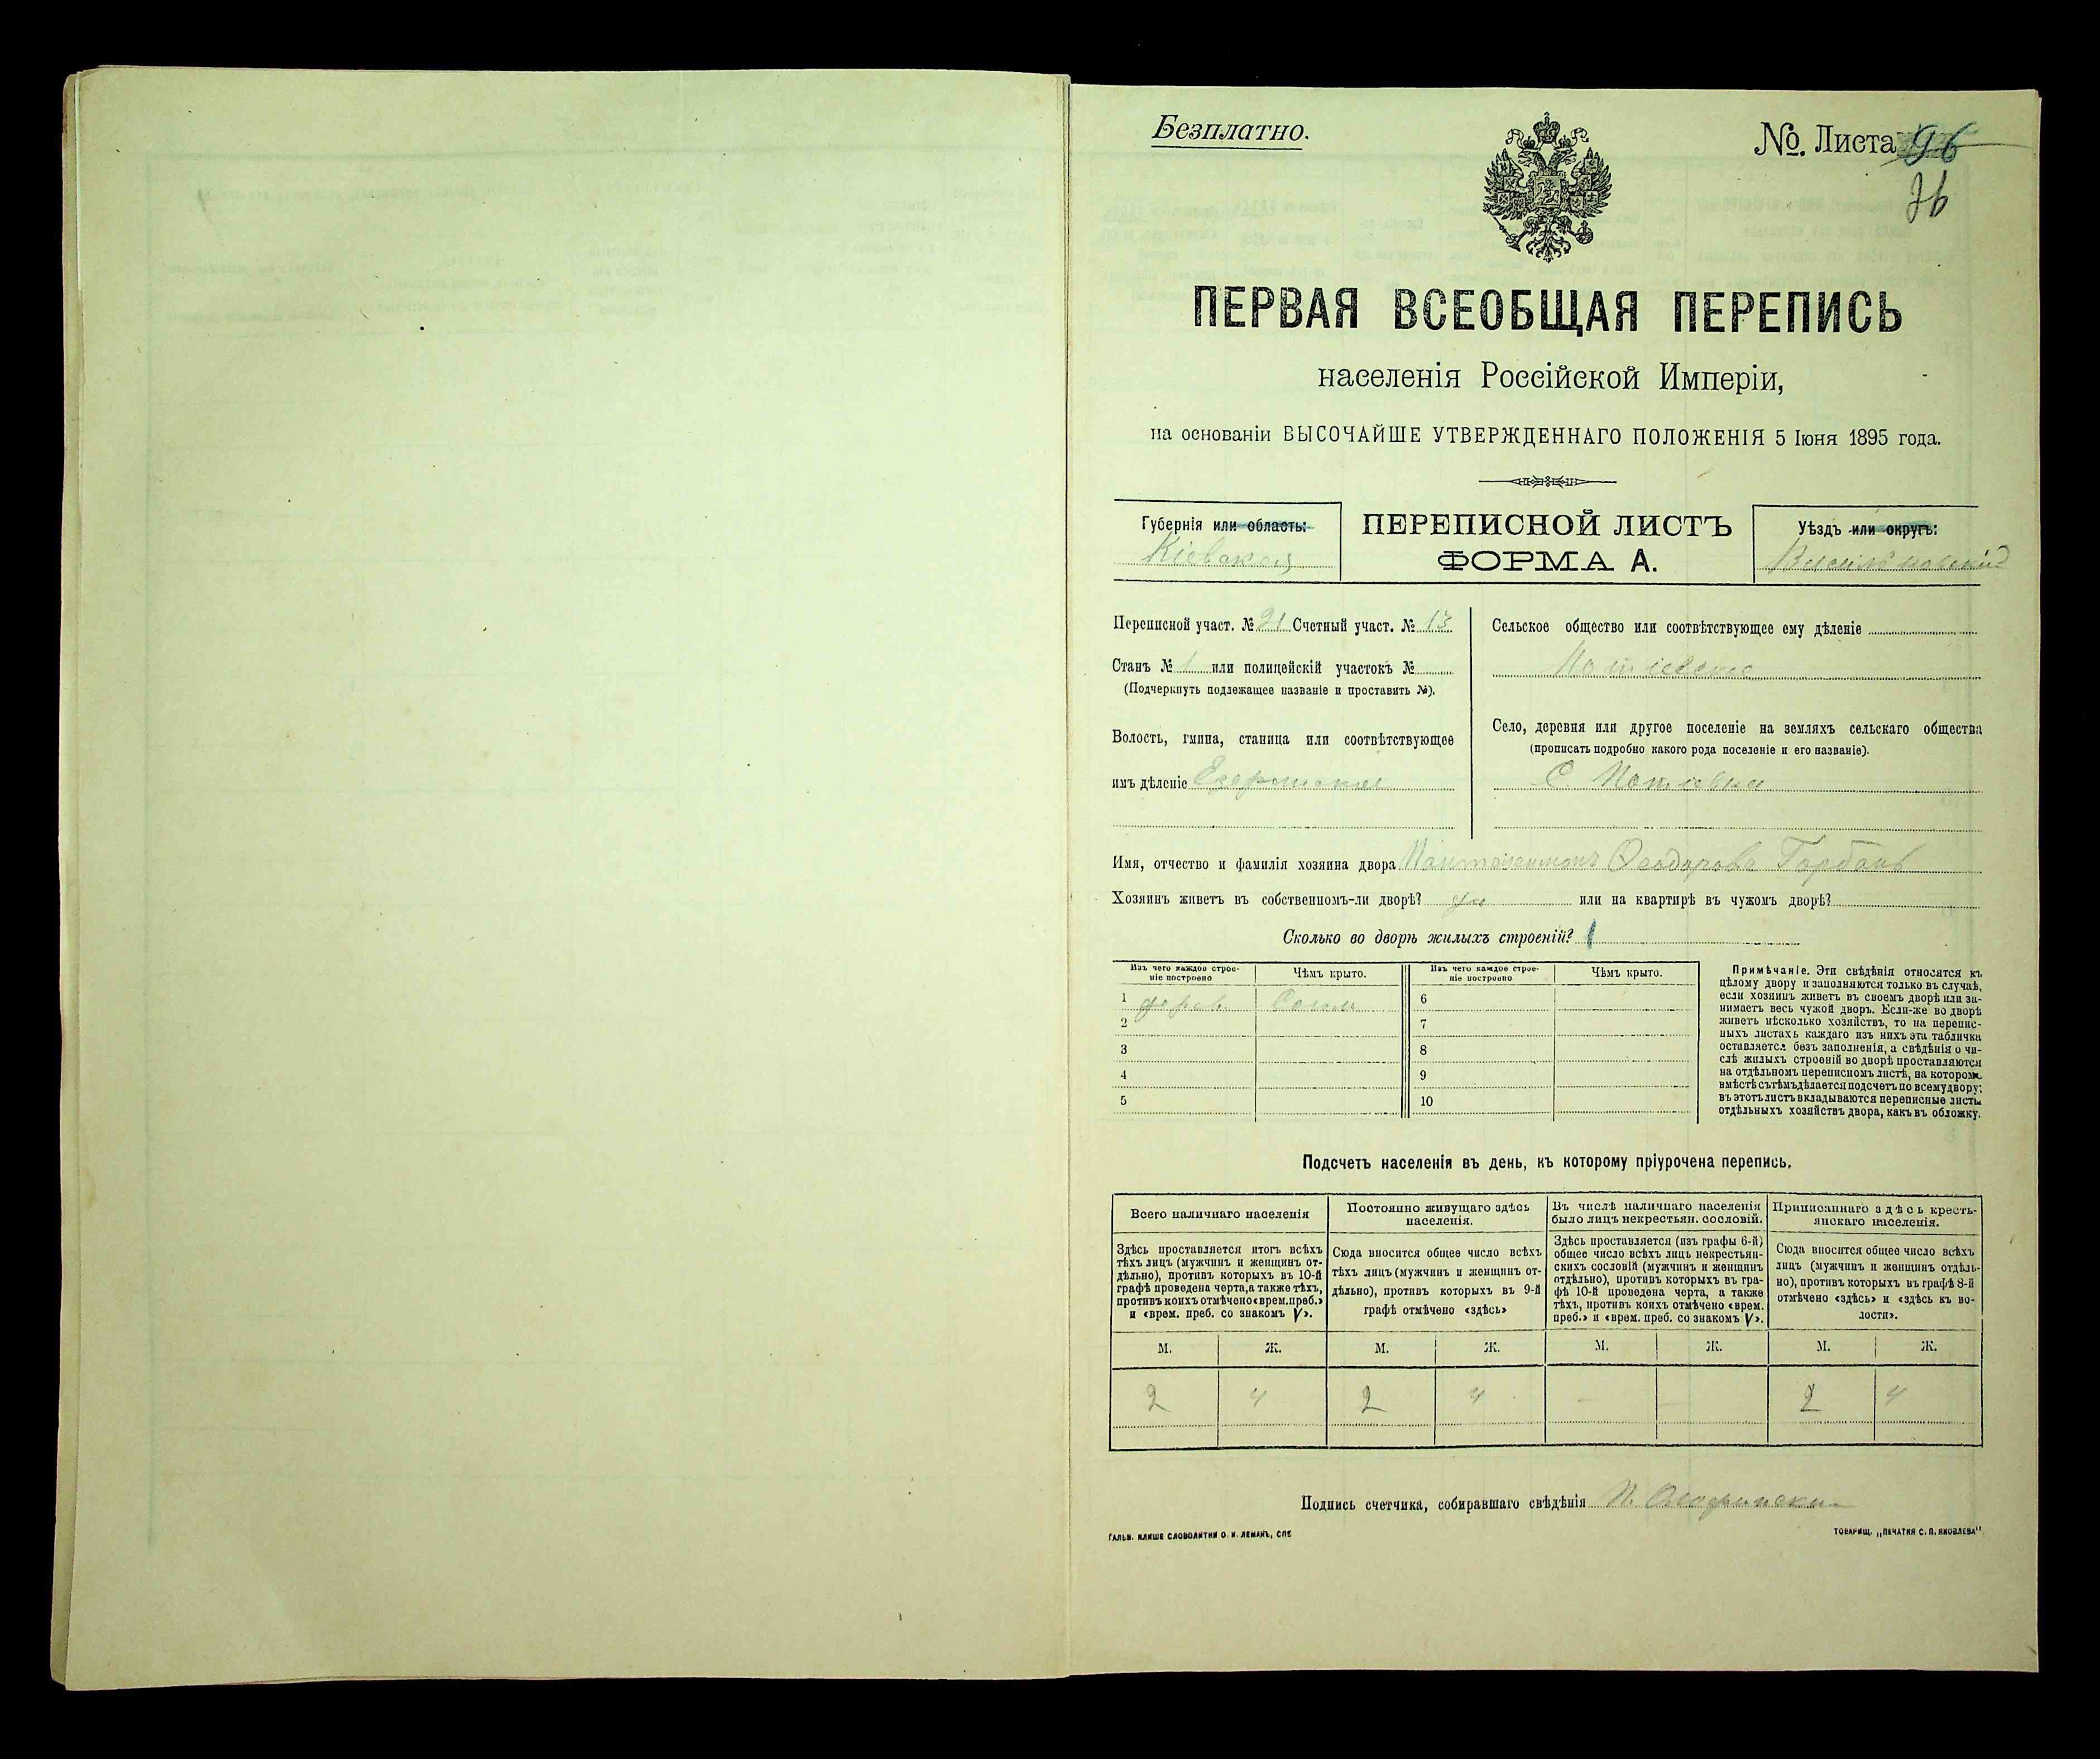 Безплатно.
№. Листа 96
76
ПЕРВАЯ ВСЕОБЩАЯ ПЕРЕПИСЬ
населенія Россійской Имперіи,
на основаніи ВЫСОЧАЙШЕ УТВЕРЖДЕННАГО ПОЛОЖЕНІЯ 5 Іюня 1895 года.
Губернія или область:
Кіевская
ПЕРЕПИСНОЙ ЛИСТЪ
ФОРМА А.
Уѣздъ или округъ:
Васильковскій
Переписной участ. № 21 Счетный участ. № 13
Станъ № 1 или полицейскій участокъ №
(Подчеркнуть подлежащее названіе и проставить №).
Волость, гмина, станица или соотвѣтствующее
имъ дѣленіе Езерянская
Сельское общество или соотвѣтствующее ему дѣленіе
Потіевское
Село, деревня или другое поселеніе на земляхъ сельскаго общества
(прописать подробно какого рода поселеніе и его названіе).
С. Потіевка
Имя, отчество и фамилія хозяина двора Пантелеимонъ Феодоровъ Горбань
Хозяинъ живетъ въ собственномъ-ли дворѣ? да или на квартирѣ въ чужомъ дворѣ?
Сколько во дворѣ жилыхъ строеній? 1
Изъ чего каждое строе-
ніе построено
Чѣмъ крыто.
Изъ чего каждое строе-
ніе построено
Чѣмъ крыто.
1 дерев. Солом 6
2 7
3 8
4 9
5 10
Примѣчаніе. Эти свѣдѣнія относятся къ
цѣлому двору и заполняются только въ случаѣ,
если хозяинъ живетъ въ своемъ дворѣ или за-
нимаетъ весь чужой дворъ. Если-же во дворѣ
живетъ нѣсколько хозяйствъ, то на перепис-
ныхъ листахъ каждаго изъ нихъ эта табличка
оставляется безъ заполненія, а свѣдѣнія о чи-
слѣ жилыхъ строеній во дворѣ проставляются
на отдѣльномъ переписномъ листѣ, на которомъ
вмѣстѣ съ тѣмъ дѣлается подсчетъ по всему двору;
въ этотъ листъ вкладываются переписные листы
отдѣльныхъ хозяйствъ двора, какъ въ обложку.
Подсчетъ населенія въ день, къ которому пріурочена перепись.
Всего наличнаго населенія
Здѣсь проставляется итогъ всѣхъ
тѣхъ лицъ (мужчинъ и женщинъ от-
дѣльно), противъ которыхъ въ 10-й
графѣ проведена черта, а также тѣхъ,
противъ коихъ отмѣчено «врем. преб.»
и «врем. преб. со знакомъ V».
Постоянно живущаго здѣсь
населенія.
Сюда вносится общее число всѣхъ
тѣхъ лицъ (мужчинъ и женщинъ от-
дѣльно), противъ которыхъ въ 9-й
графѣ отмѣчено «здѣсь»
Въ числѣ наличнаго населенія
было лицъ некрестьян. сословій.
Здѣсь проставляется (изъ графы 6-й)
общее число всѣхъ лицъ некрестьян-
скихъ сословій (мужчинъ и женщинъ
отдѣльно), противъ которыхъ въ гра-
фѣ 10-й проведена черта, а также
тѣхъ, противъ коихъ отмѣчено «врем.
преб.» и «врем. преб. со знакомъ V».
Приписаннаго здѣсь кресть-
янскаго населенія.
Сюда вносится общее число всѣхъ
лицъ (мужчинъ и женщинъ отдѣль-
но), противъ которыхъ въ графѣ 8-й
отмѣчено «здѣсь» и «здѣсь къ во-
лости».
М. Ж. М. Ж. М. Ж. М. Ж.
2 4 2 4 — — 2 4
Подпись счетчика, собиравшаго свѣдѣнія
ГАЛЬВ. КЛИШЕ СЛОВОЛИТНИ О. И. ЛЕМАНЪ, СПБ
ТОВАРИЩ. „ПЕЧАТНЯ С. П. ЯКОВЛЕВА"